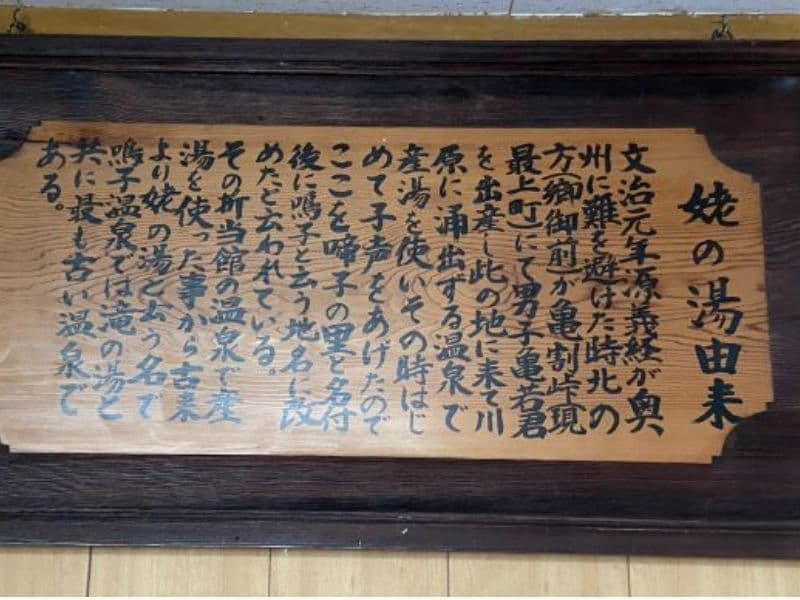 姥の湯由来
文治元年源義経が奥
州に難を避けた時北の
方(御御前)が亀割峠(現
最上町)にて男子亀若君
を出産し此の地に来て川
原に涌出ずる温泉で
産湯を使いその時はじ
めて子声をあげたので
ここを啼子の里と名付
後に鳴子と云う地名に改
めたと云われている。
その折当館の温泉で産
湯を使った事から古来
より姥の湯と云う名で
鳴子温泉では滝の湯と
共に最も古い温泉で
ある。